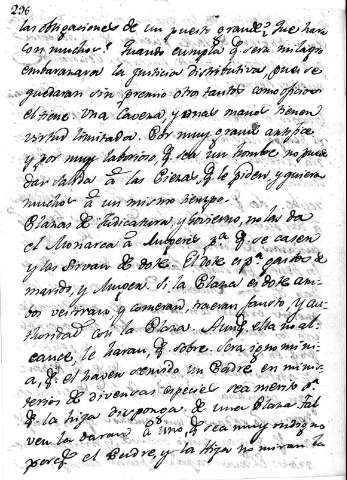 206
las obligaciones de un puesto grande? Que hara
con muchos? Quando cumpla q. sera milagro
embarazara la Justicia distributiva, pues se
quedaran sin premio otros tantos como oficios
el tiene. Una Caveza, y unas manos tienen
virtud limitada. Por muy grande artifice
y por muy laborioso, q. sea un hombre no puede
dar salida à las Piezas q. le piden, y quieren
muchos à un mismo tiempo.
Plazas de Judicatura y Govierno, no las da
el Monarca à Mugeres p.a q. se casen
y las sirvan de dote. El dote es p.a gastos de
marido, y Muger. Si la Plaza es dote am-
bos vestiran, y comeran, traeran fausto, y au-
thoridad con la Plaza. Aunq. ella no al-
cance, le haran, q. sobre. Sera ignominia,
a, q. el haver servido un Padre en minis-
terios de diversas especies sea merito p.a
q. la hija disponga de una Plaza. Tal
vez la daran à uno, q. sea muy indigno
porq. el Padre, y la Hija no miran la